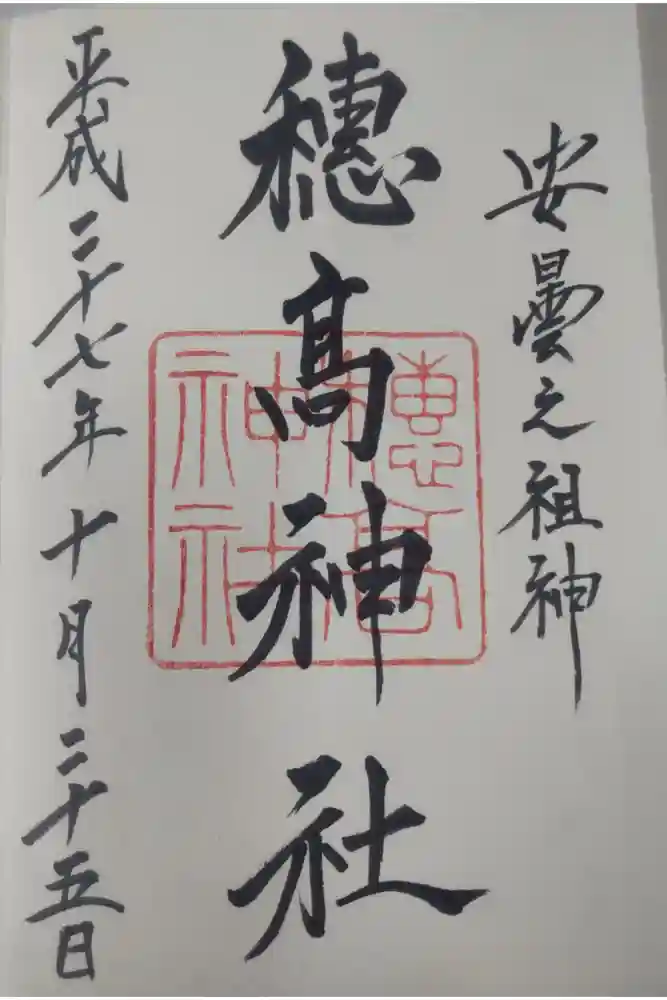 安曇之祖神
穗髙神社
穂高神社
平成二十七年十月二十五日